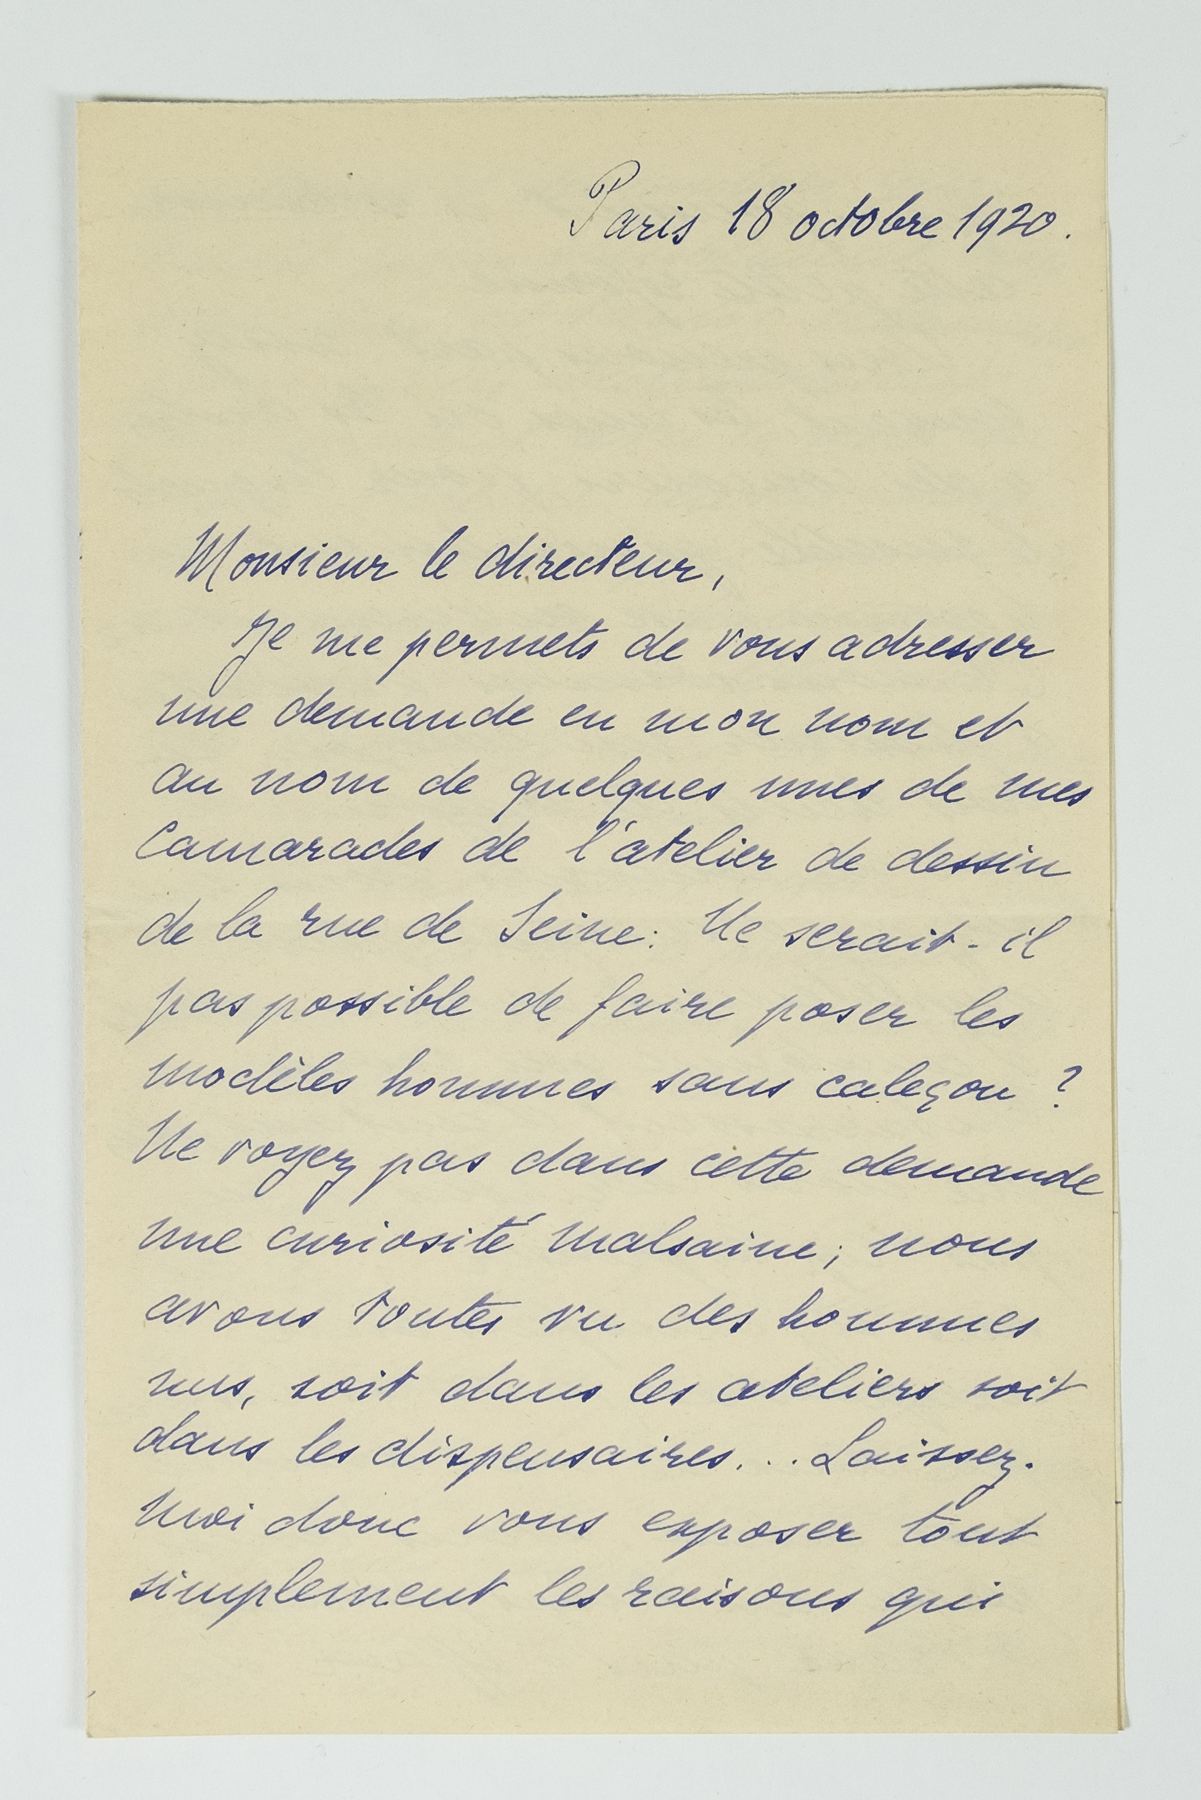 Paris 18 octobre 1920.
Monsieur le directeur,
Je me permets de vous adresser
une demande en mon nom et
au nom de quelques unes de mes
Camarades de l'atelier de dessin
de la rue de Seine: Ne serait-il
pas possible de faire poser les
modèles hommes sans caleçon ?
Ne voyez pas dans cette demande
une curiosité malsaine; nous
avons toutes vu des hommes
nus, soit dans les ateliers soit
dans les dispensaires... Laissez-
moi donc vous exposer tout
simplement les raisons qui